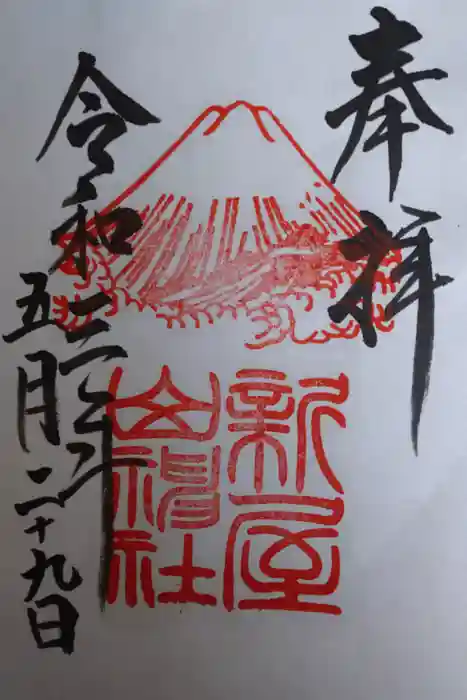 奉拝
新屋
山神社
令和三年
五月二十九日